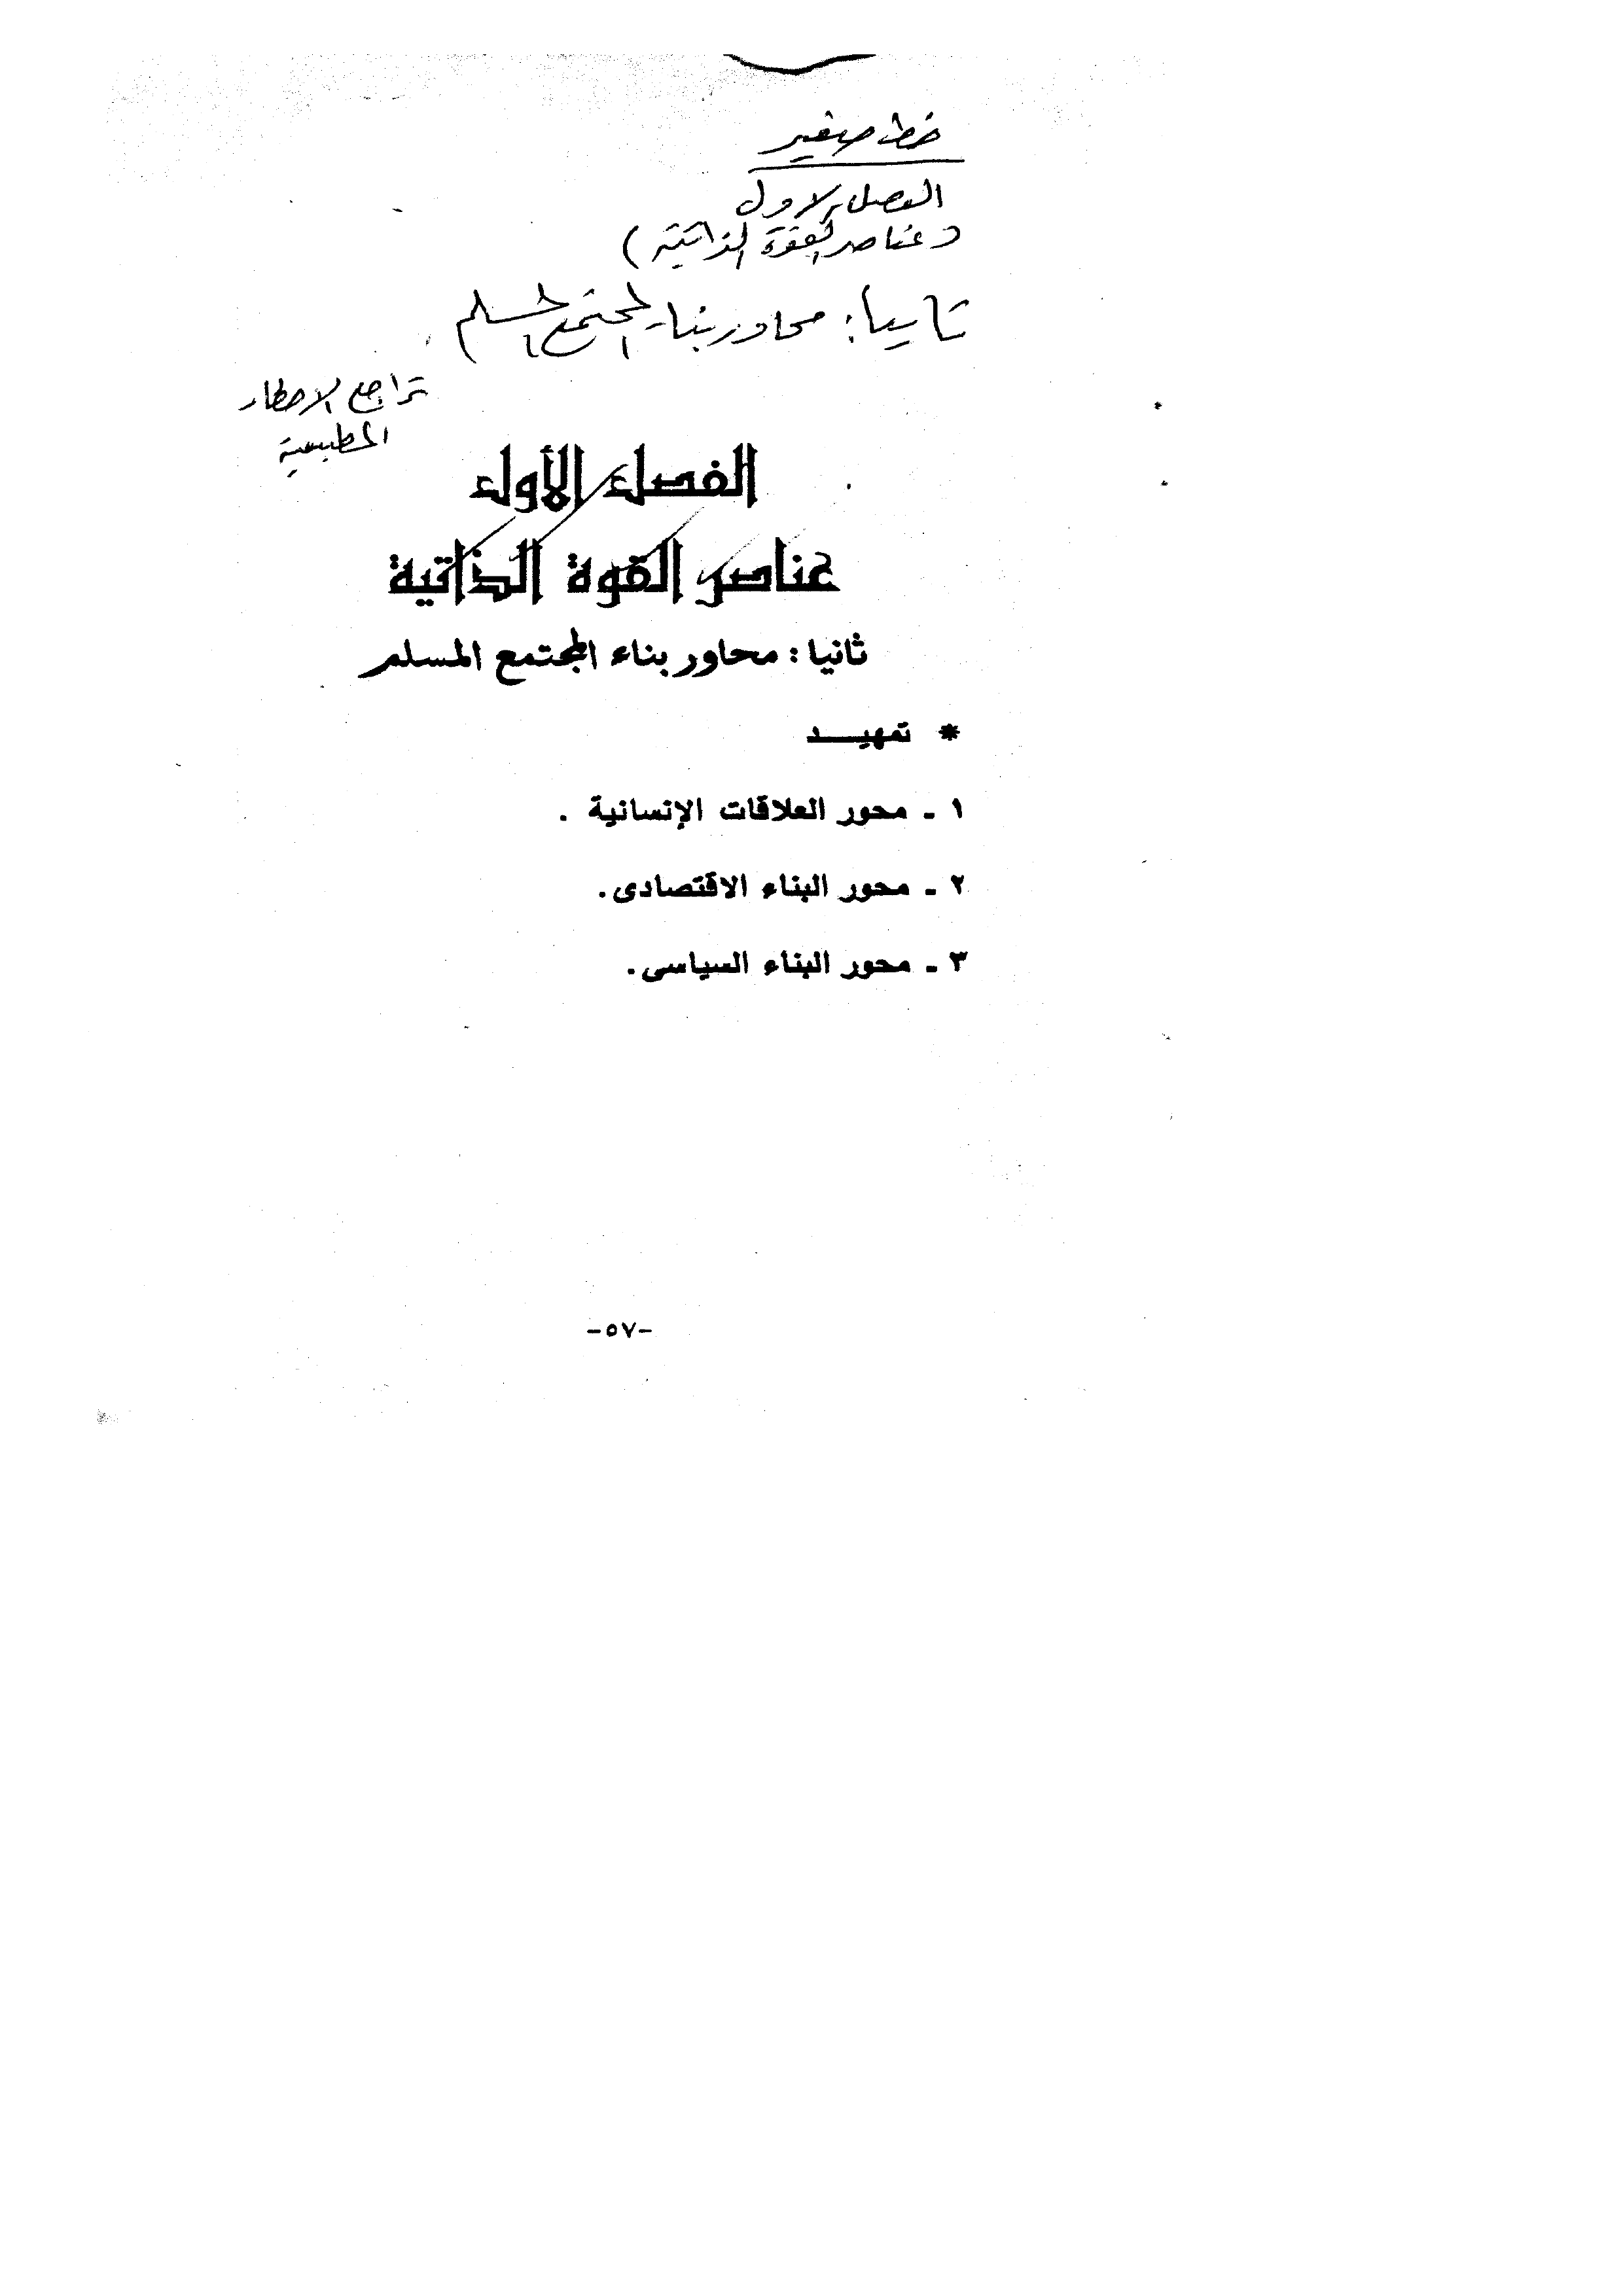 خط صغير
الفصل الاول
(عناصر القوة الذاتية)
ثانيا: محاور بناء المجتمع المسلم
تراجع الاخطاء
المطبعية
الفصل الأول
عناصر القوة الذاتية
ثانيا : محاور بناء المجتمع المسلم
* تمهيــــد
١ ـ محور العلاقات الإنسانية .
٢ ـ محور البناء الاقتصادى.
٣ ـ محور البناء السياسى.
-٥٧-